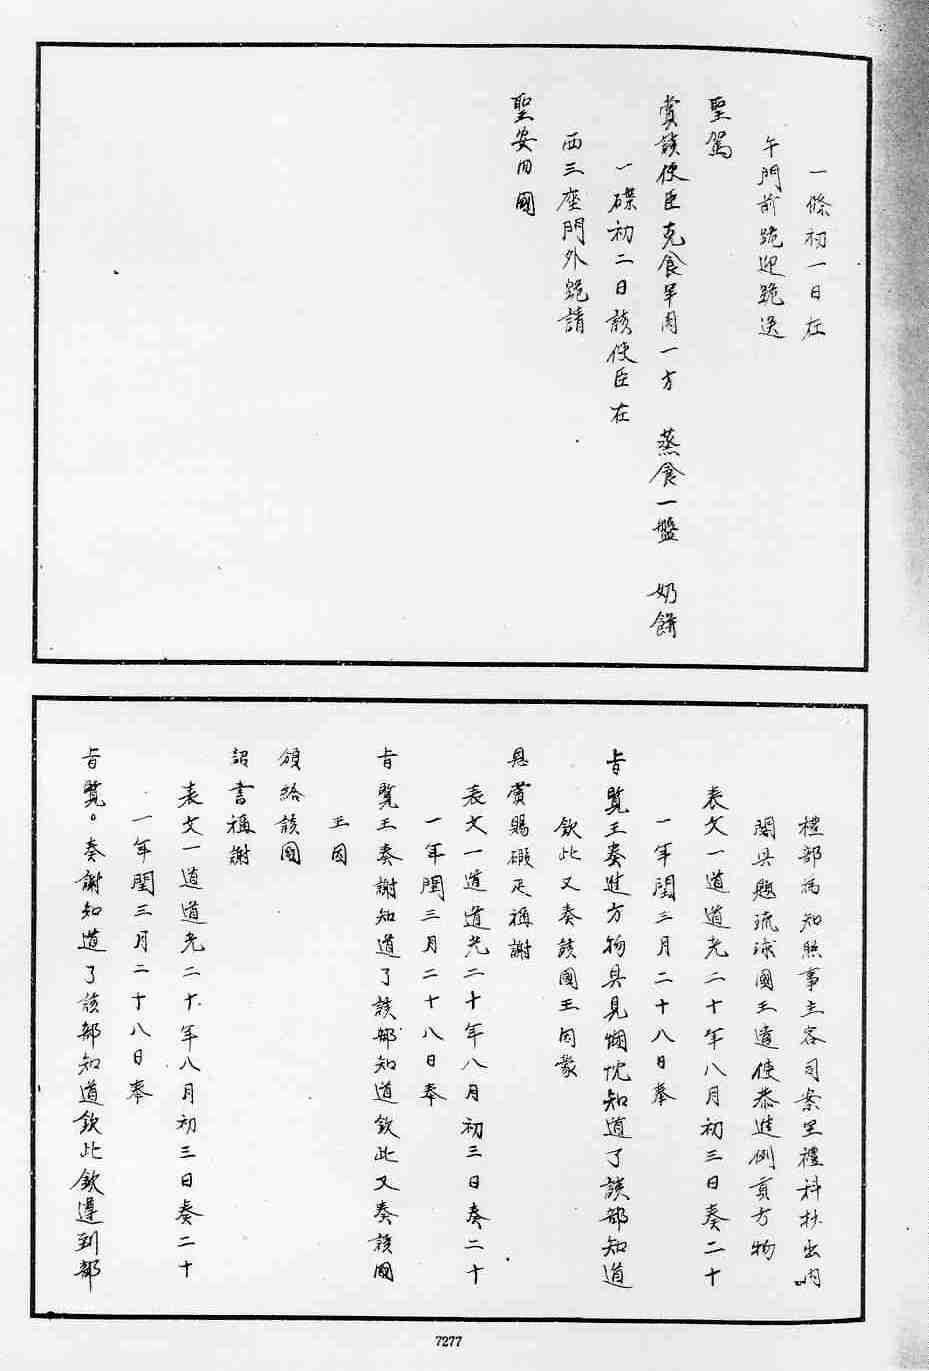 一條初一日在
午門前跪迎跪送
聖駕
賞該使臣克食羊肉一方 蒸食一盤 奶餅
一碟初二日該使臣在
西三座門外跪請
聖安回國
禮部為知照事主客司案呈禮科抄出內
閣具題琉球國王遣使恭進例貢方物
表文一道道光二十年八月初三日奏二十
一年閏三月二十八日奉
旨覽王奏進方物具見悃忱知道了該部知道
欽此又奏該國王因蒙
恩賞賜緞疋稱謝
表文一道道光二十年八月初三日奏二十
一年閏三月二十八日奉
旨覽王奏謝知道了該部知道欽此又奏該國
王因
頒給該國
詔書稱謝
表文一道道光二十年八月初三日奏二十
一年閏三月二十八日奉
旨覽。奏謝知道了該部知道欽此欽遵到部
7277